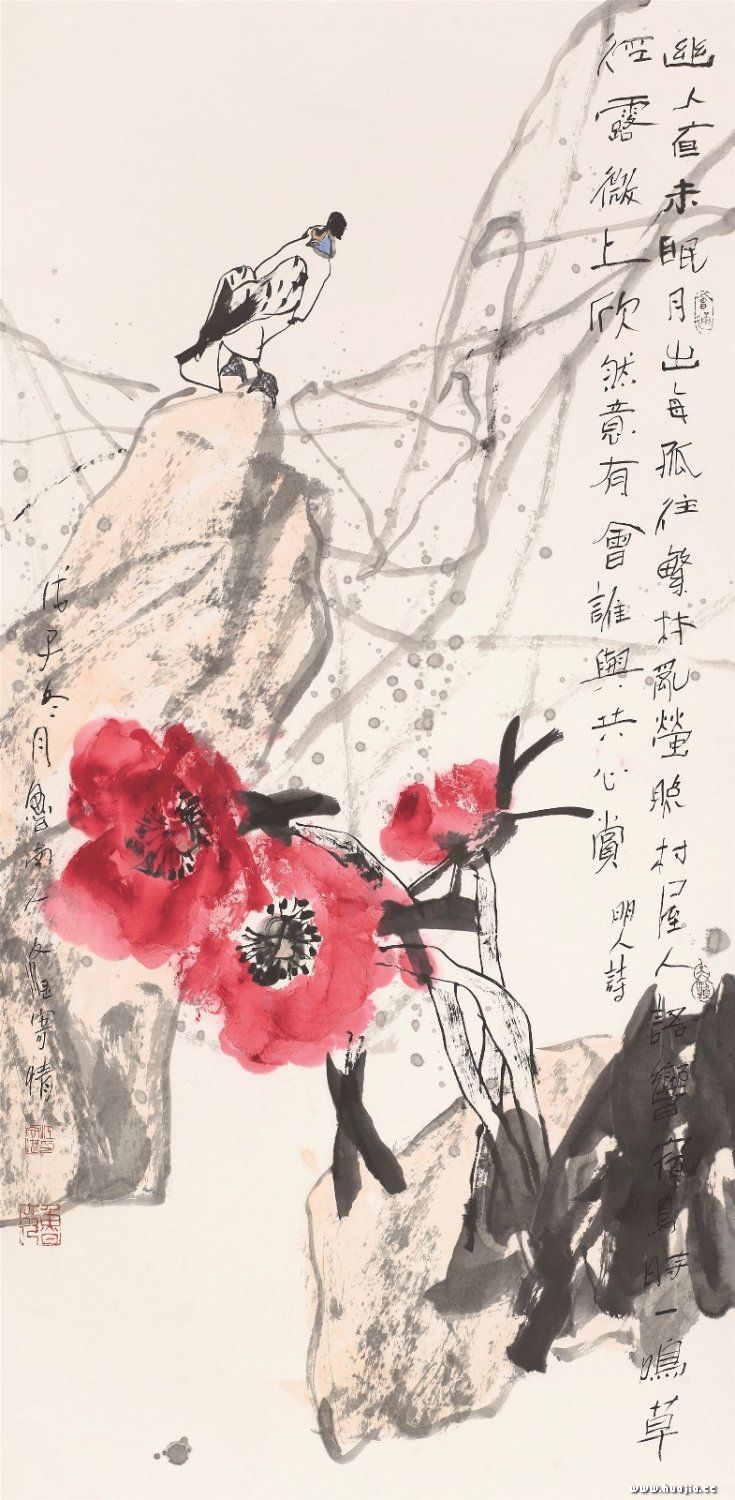 幽人亱未眠月出每孤往繁林亂螢照村屋人語響宿鳥時一鳴草
徑露微上欣然意有會誰與共心賞
明人詩
冬月魯南人
www.huajia.cc